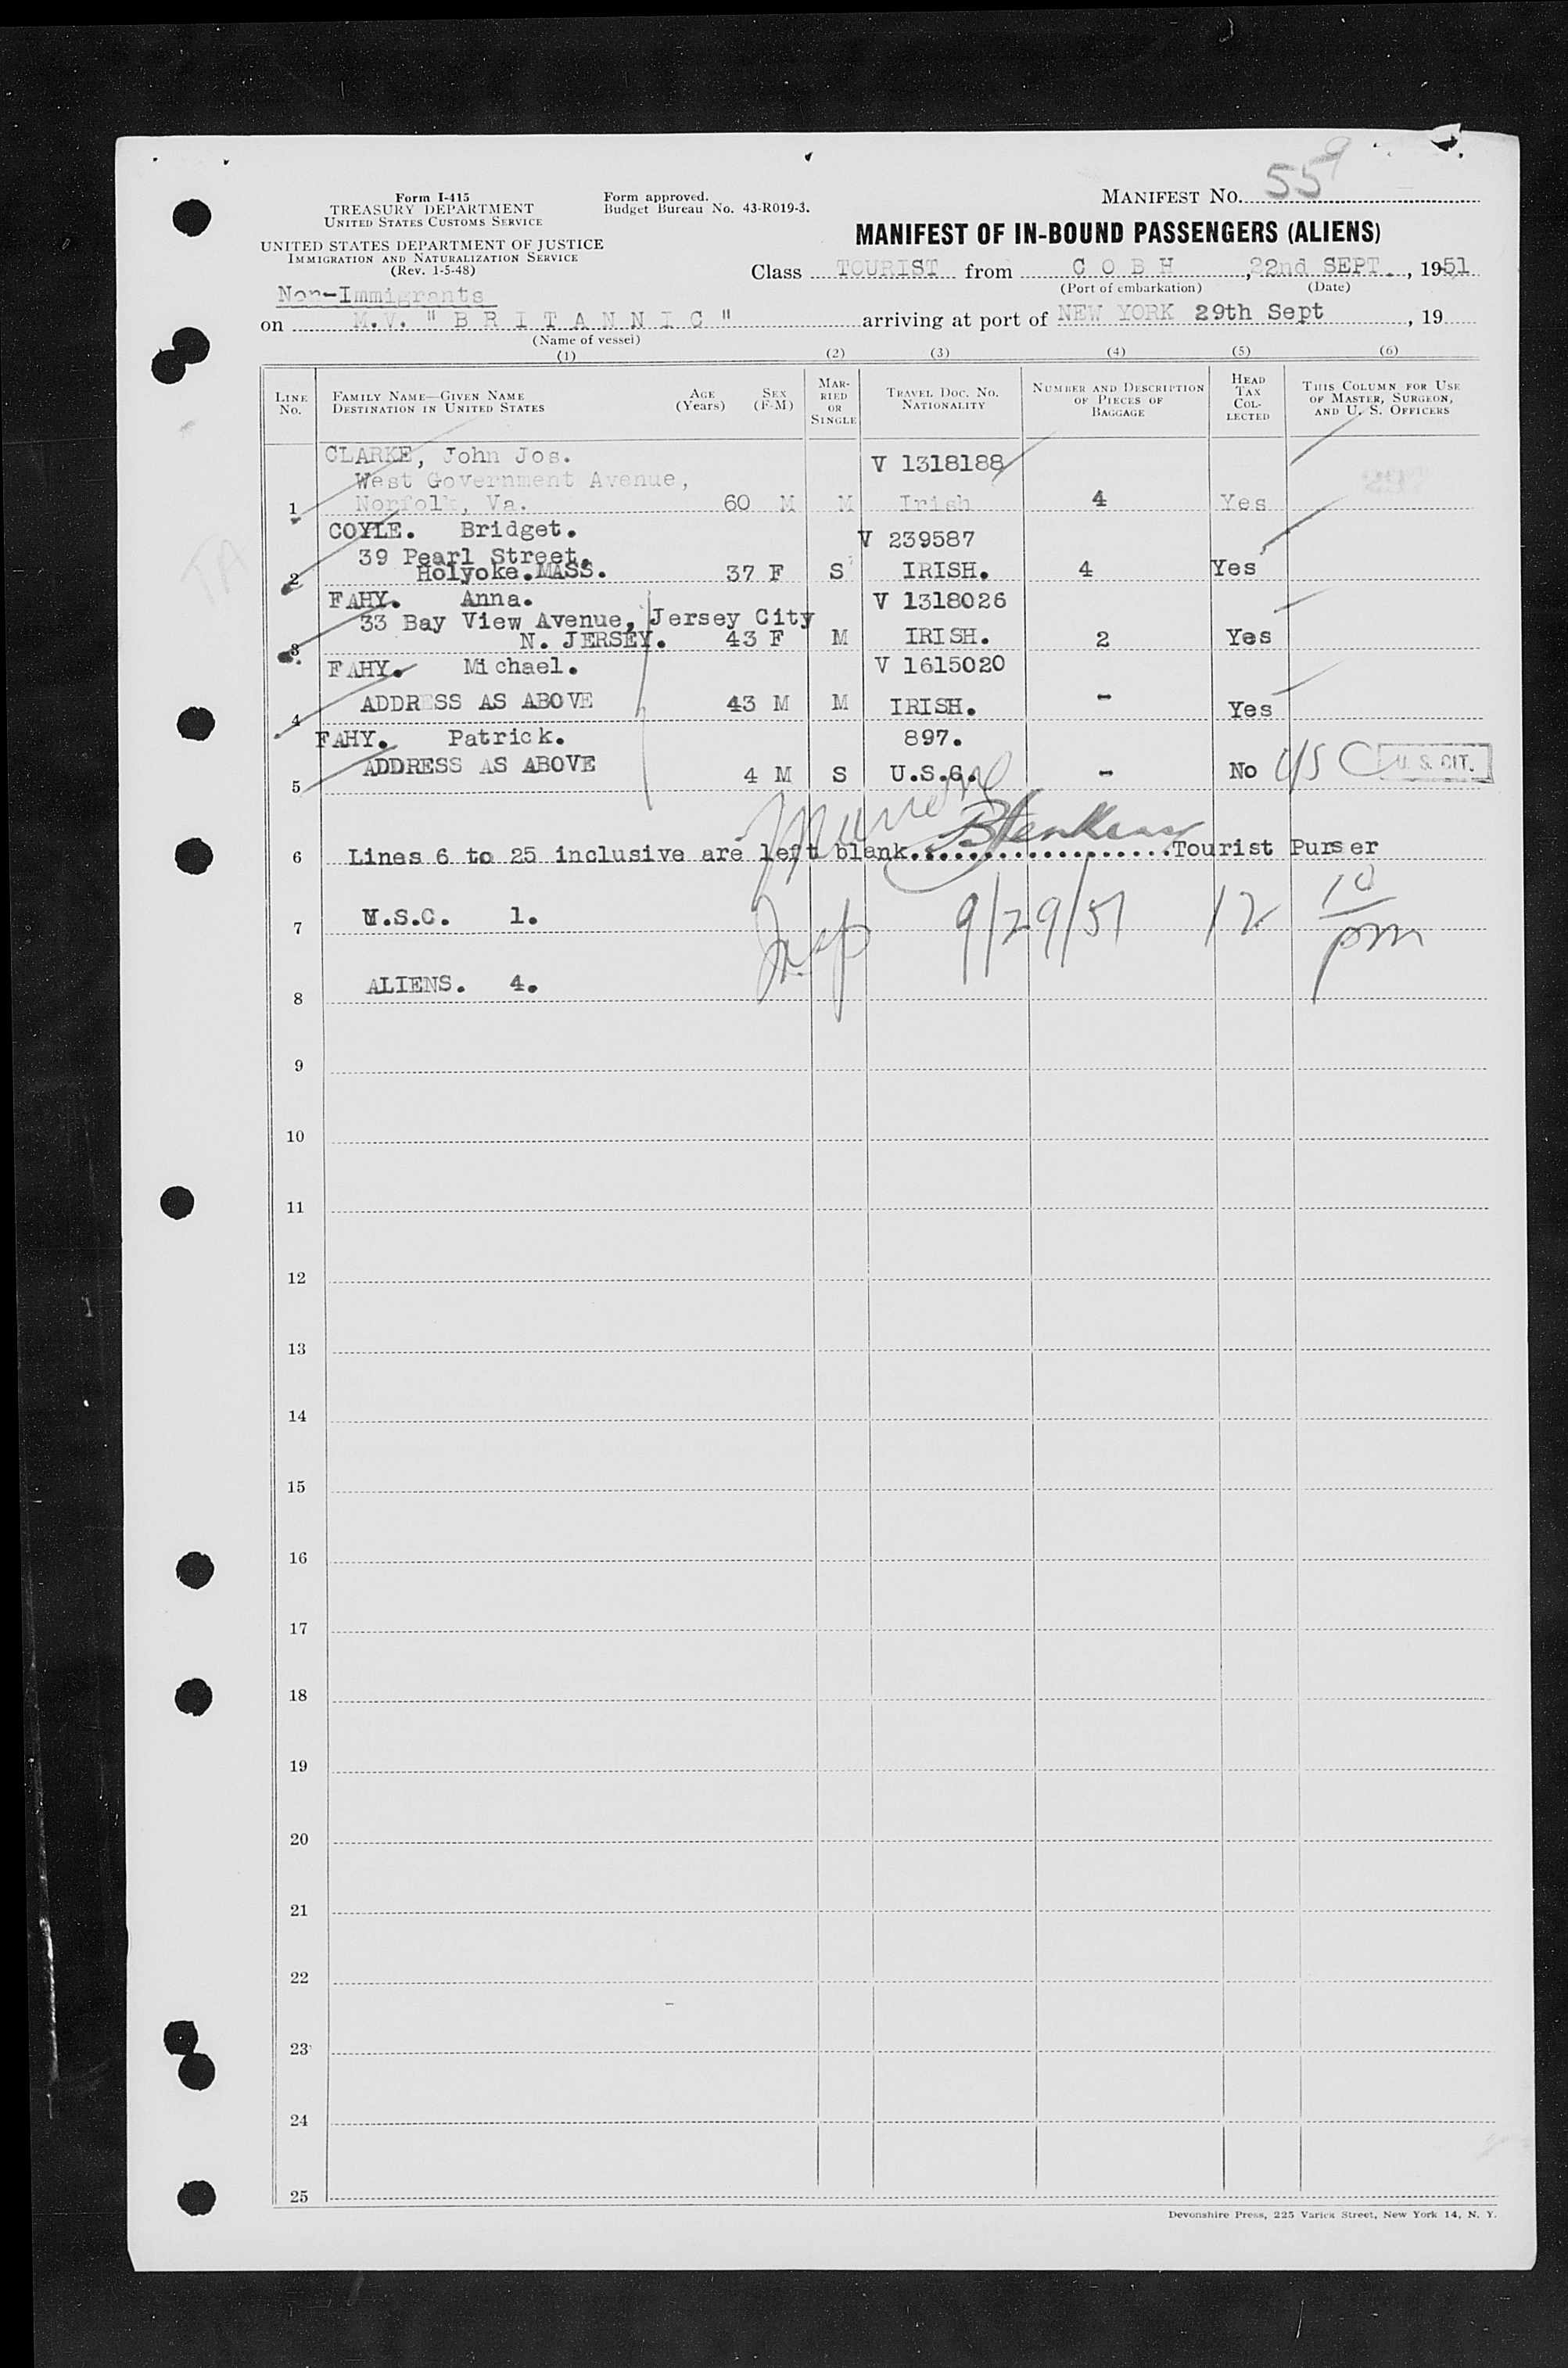 MANIFEST NO. 55 9
Form I-415
TREASURY DEPARTMENT
UNITED STATES CUSTOMS SERVICE
Form approved.
Budget Bureau No. 43-R019-3.
UNITED STATES DEPARTMENT OF JUSTICE
IMMIGRATION AND NATURALIZATION SERVICE
(Rev. 1-5-48)
MANIFEST OF IN-BOUND PASSENGERS (ALIENS)
Class TOURIST from C O B H , 22nd SEPT. , 1951
(Port of embarkation) (Date)
Non-Immigrants
on M.V. "B R I T A N N I C" arriving at port of NEW YORK 29th Sept , 19
(Name of vessel)
(1) (2) (3) (4) (5) (6)
LINE No. FAMILY NAME—GIVEN NAME DESTINATION IN UNITED STATES AGE (Years) SEX (F-M) MARRIED OR SINGLE TRAVEL DOC. NO. NATIONALITY NUMBER AND DESCRIPTION OF PIECES OF BAGGAGE HEAD TAX COLLECTED THIS COLUMN FOR USE OF MASTER, SURGEON, AND U. S. OFFICERS
CLARKE, John Jos. V 1318188
West Government Avenue,
1 Norfolk, Va. 60 M M Irish 4 Yes
COYLE. Bridget. V 239587
39 Pearl Street.
2 Holyoke.MASS. 37 F S IRISH. 4 Yes
TA
FAHY. Anna. V 1318026
33 Bay View Avenue, Jersey City
3 N. JERSEY. 43 F M IRISH. 2 Yes
FAHY. Michael. V 1615020
4 ADDRESS AS ABOVE 43 M M IRISH. - Yes
FAHY. Patrick. 897.
5 ADDRESS AS ABOVE 4 M S U.S.C. - No USC U. S. CIT.
6 Lines 6 to 25 inclusive are left blank. Tourist Purser
7 U.S.C. 1. Insp 9/29/51 12 10 pm
8 ALIENS. 4.
9
10
11
12
13
14
15
16
17
18
19
20
21
22
23
24
25
Devonshire Press, 225 Varick Street, New York 14, N. Y.